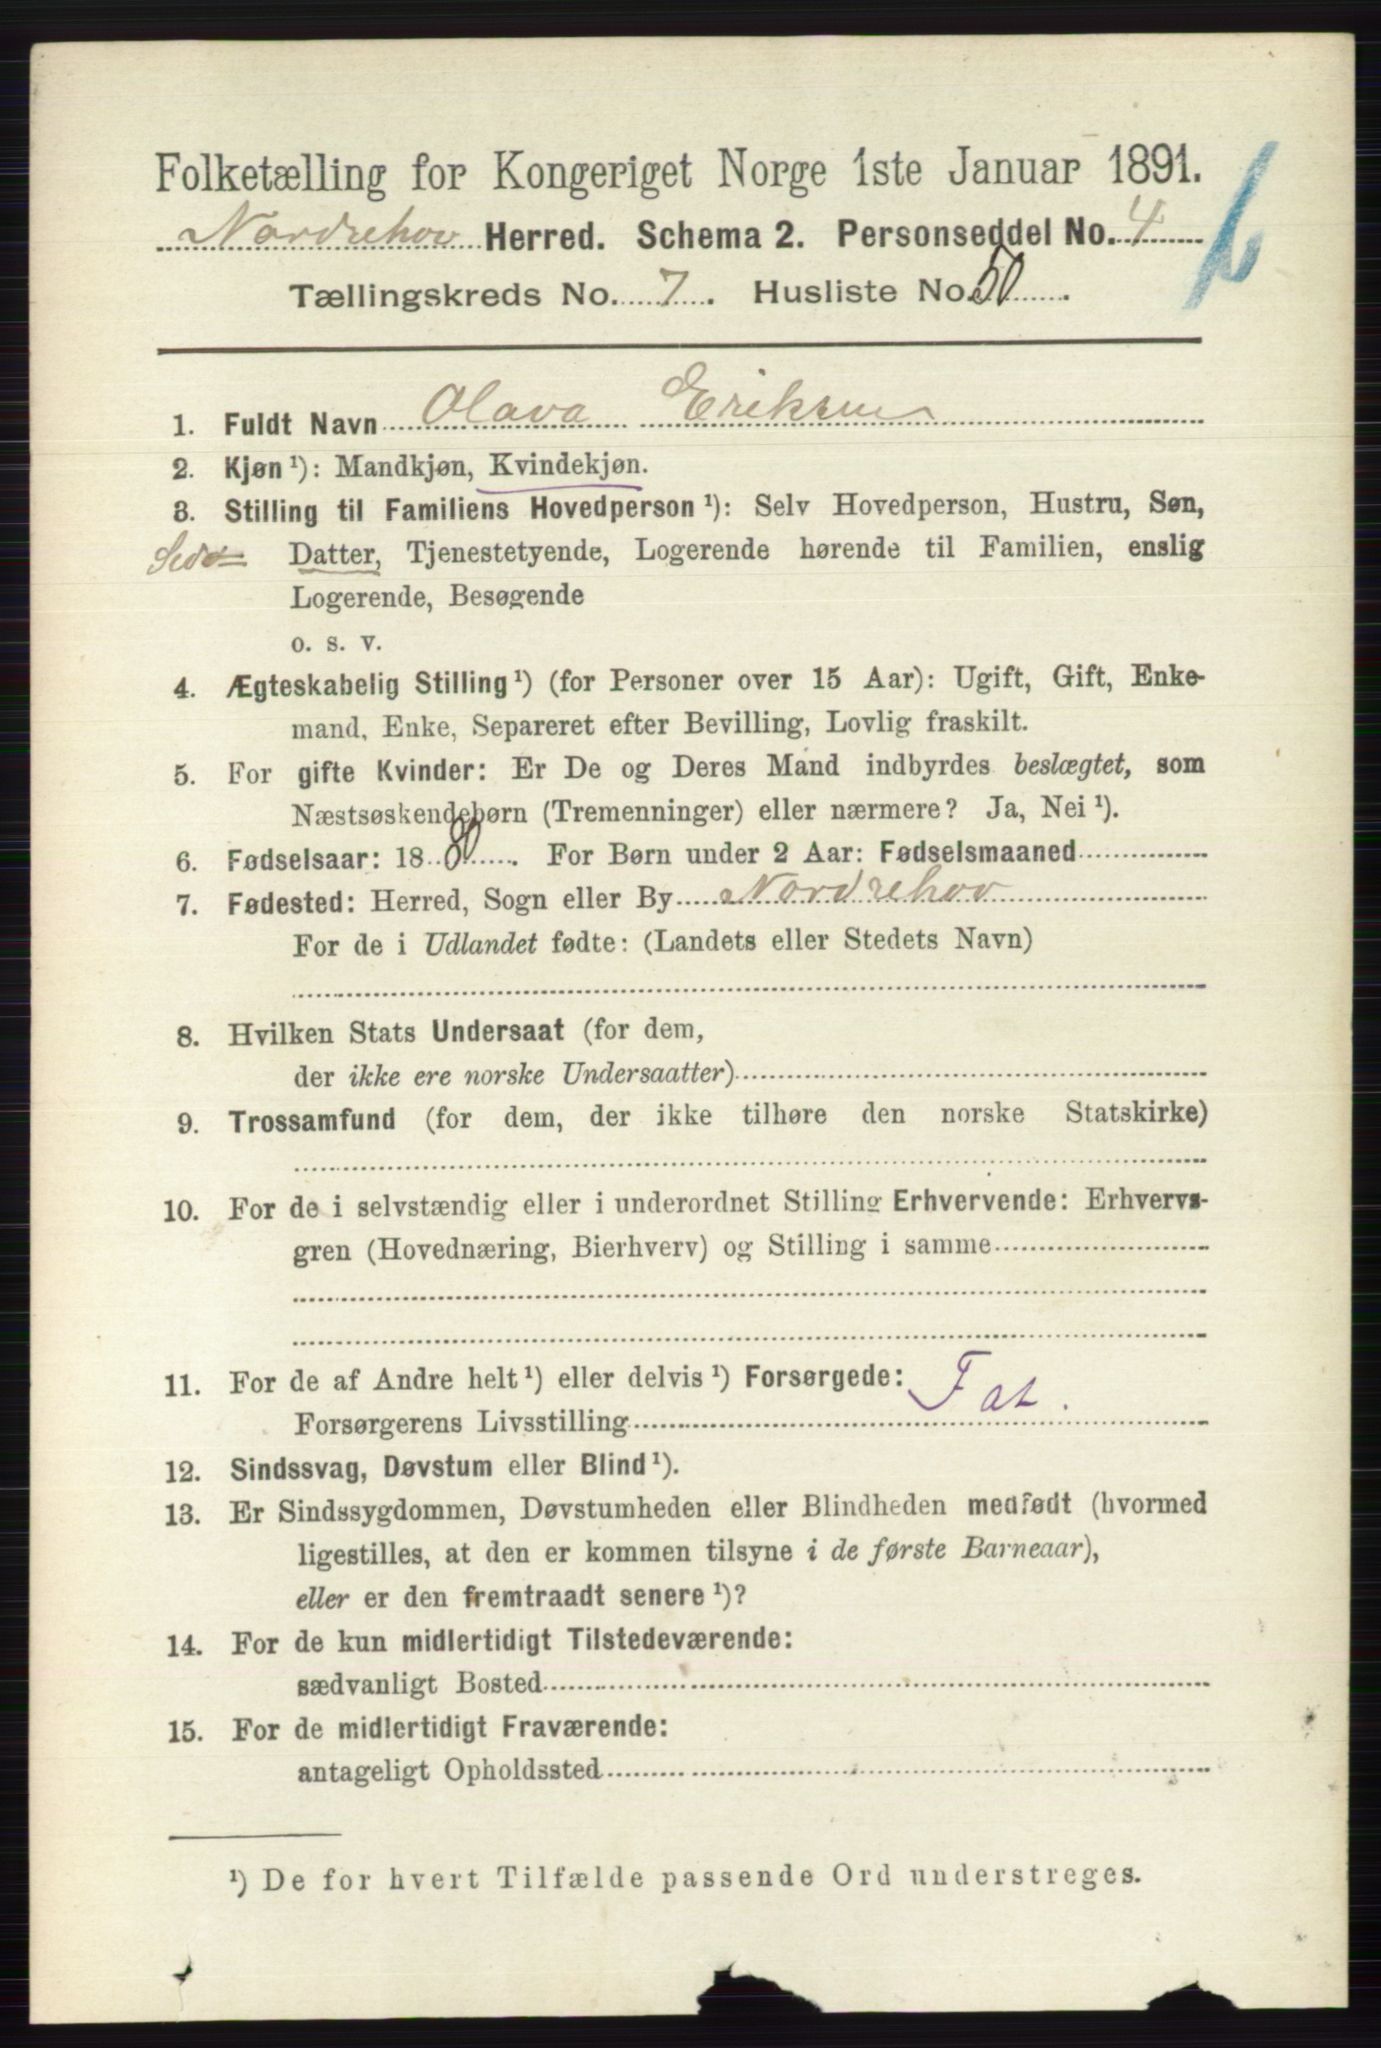 Folketælling for Kongeriget Norge 1ste Januar 1891.
Nordrehov Herred. Schema 2. Personseddel No. 4
Tællingskreds No. 7. Husliste No. 50.
1. Fuldt Navn Olava Eriksen
2. Kjøn ¹): Mandkjøn, Kvindekjøn.
3. Stilling til Familiens Hovedperson ¹): Selv Hovedperson, Hustru, Søn,
Datter, Tjenestetyende, Logerende hørende til Familien, enslig
Logerende, Besøgende
o. s. v.
4. Ægteskabelig Stilling ¹) (for Personer over 15 Aar): Ugift, Gift, Enke-
mand, Enke, Separeret efter Bevilling, Lovlig fraskilt.
5. For gifte Kvinder: Er De og Deres Mand indbyrdes beslægtet, som
Næstsøskendebørn (Tremenninger) eller nærmere? Ja, Nei ¹).
6. Fødselsaar: 1880. For Børn under 2 Aar: Fødselsmaaned
7. Fødested: Herred, Sogn eller By Nordrehov
For de i Udlandet fødte: (Landets eller Stedets Navn)
8. Hvilken Stats Undersaat (for dem,
der ikke ere norske Undersaatter)
9. Trossamfund (for dem, der ikke tilhøre den norske Statskirke)
10. For de i selvstændig eller i underordnet Stilling Erhvervende: Erhvervs-
gren (Hovednæring, Bierhverv) og Stilling i samme
11. For de af Andre helt ¹) eller delvis ¹) Forsørgede:
Forsørgerens Livsstilling Fat.
12. Sindssvag, Døvstum eller Blind ¹).
13. Er Sindssygdommen, Døvstumheden eller Blindheden medfødt (hvormed
ligestilles, at den er kommen tilsyne i de første Barneaar),
eller er den fremtraadt senere ¹)?
14. For de kun midlertidigt Tilstedeværende:
sædvanligt Bosted
15. For de midlertidigt Fraværende:
antageligt Opholdssted
¹) De for hvert Tilfælde passende Ord understreges.